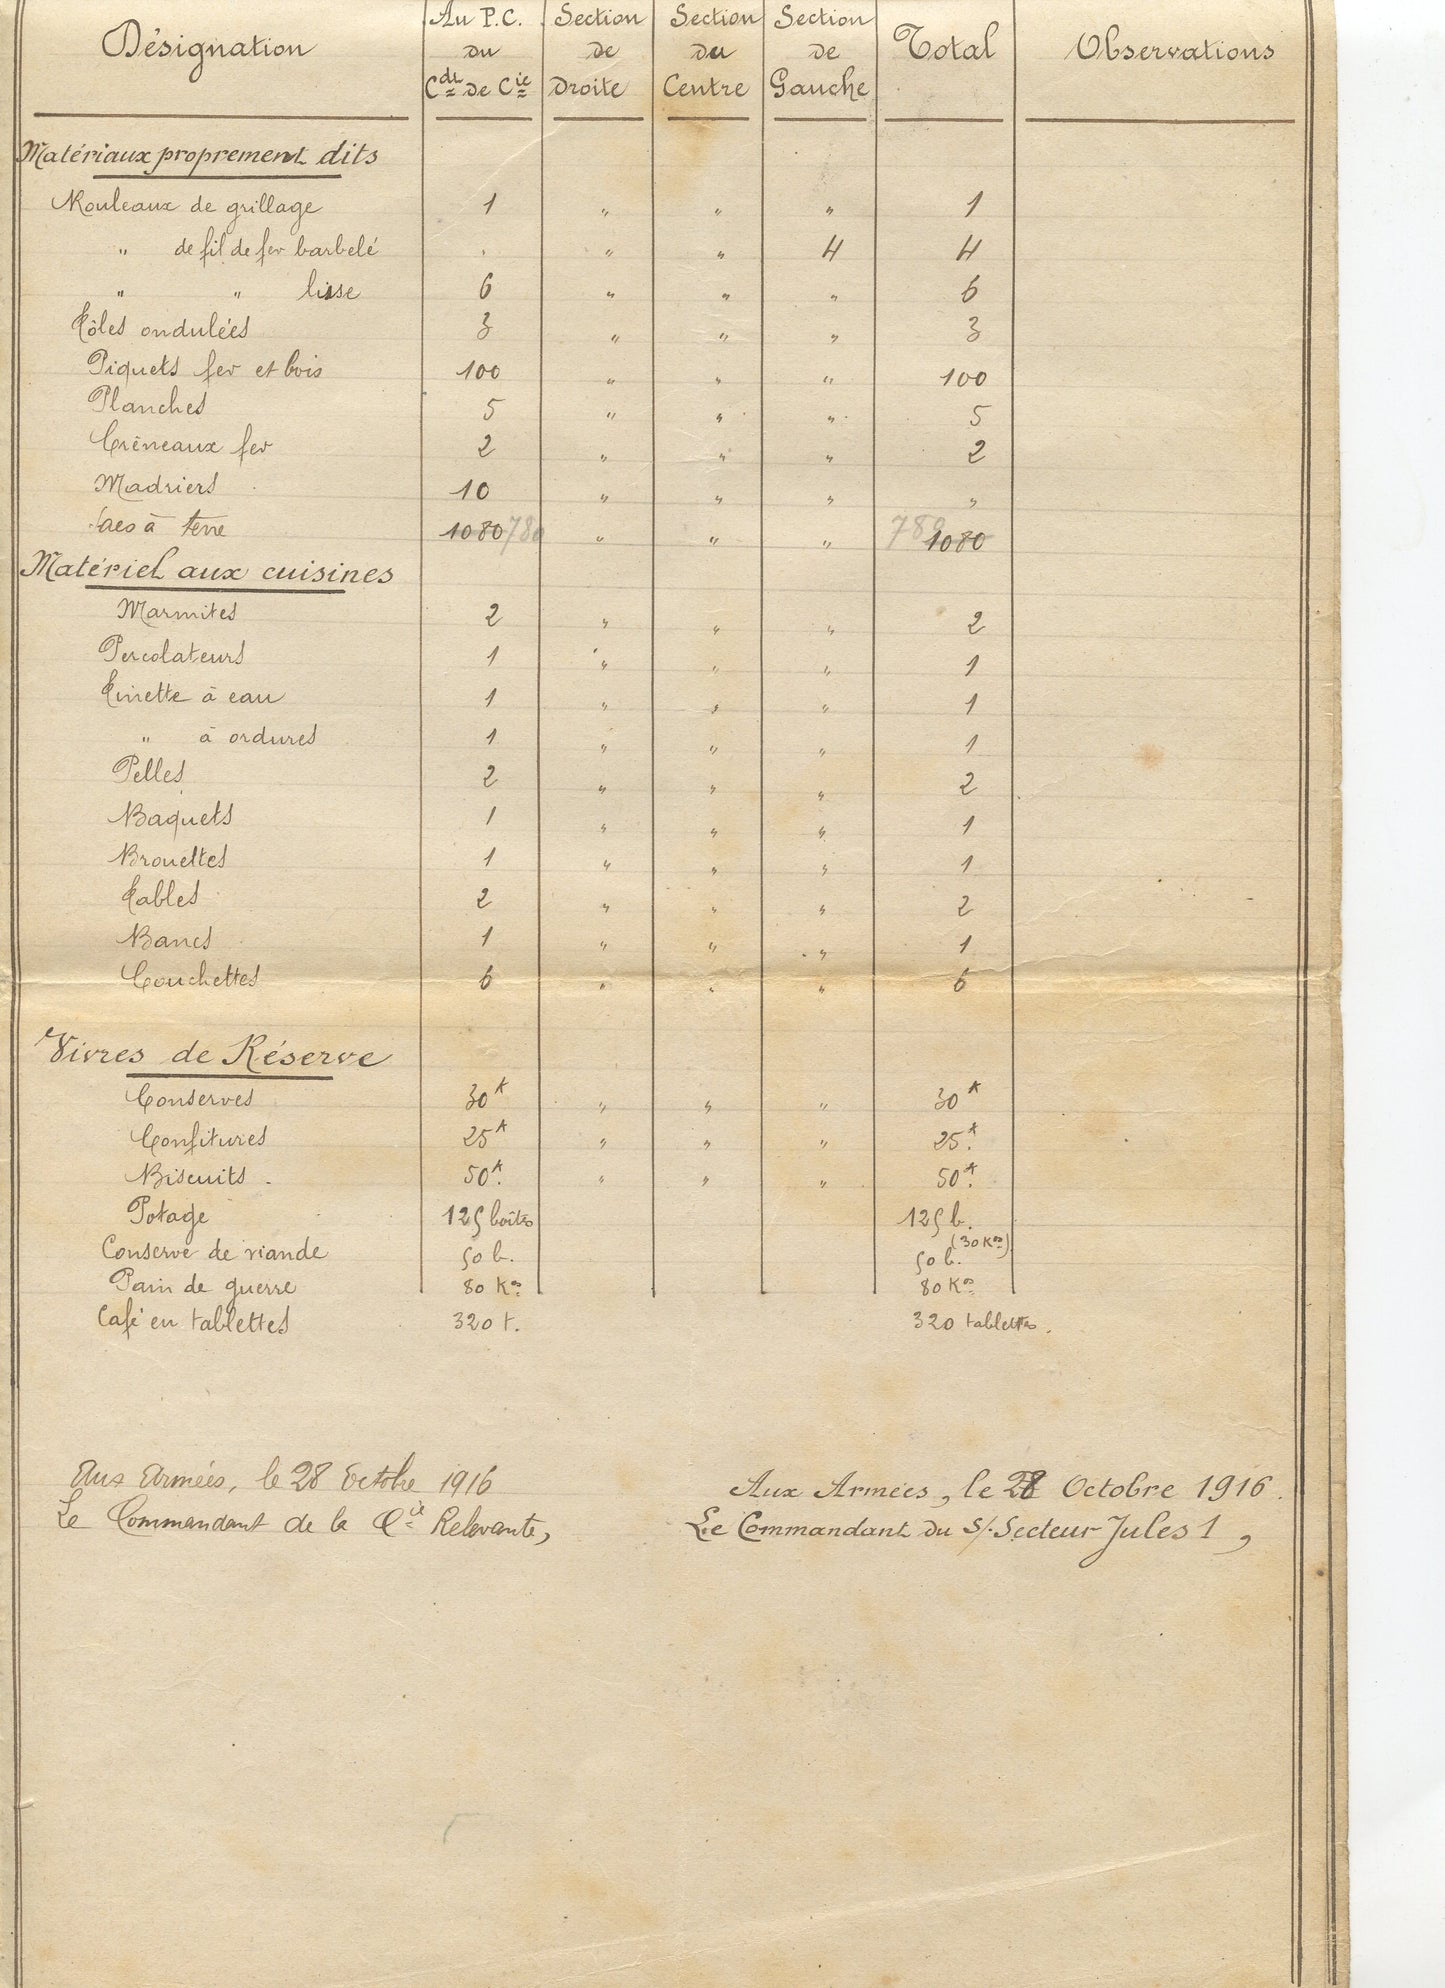 Désignation Au P.C. Section Section Section Total Observations
du de du de
Cdt de Cie Droite Centre Gauche
Matériaux proprement dits
Rouleaux de grillage 1 " " " 1
" de fil de fer barbelé . " " 4 4
" " lisse 6 " " " 6
Tôles ondulées 3 " " " 3
Piquets fer et bois 100 " " " 100
Planches 5 " " " 5
Crêneaux fer 2 " " " 2
Madriers 10 " " " "
Sacs à terre 1080 780 " " " 780 1080
Matériel aux cuisines
Marmites 2 " " " 2
Percolateurs 1 " " " 1
Tinette à eau 1 " " " 1
" à ordures 1 " " " 1
Pelles 2 " " " 2
Baquets 1 " " " 1
Brouettes 1 " " " 1
Tables 2 " " " 2
Bancs 1 " " " 1
Couchettes 6 " " " 6
Vivres de Réserve
Conserves 30k " " " 30k
Confitures 25k " " " 25k.
Biscuits . 50k. " " " 50k.
Potage 125 boîtes 125 b.
(30 Kos)
Conserve de viande 50 b. 50 b.
Pain de guerre 80 Kos 80 Kos
Café en tablettes 320 t. 320 tablettes.
Aux Armées, le 28 Octobre 1916
Le Commandant de la Cie Relevante,
Aux Armées, le 28 Octobre 1916.
Le Commandant du S/. Secteur Jules 1,